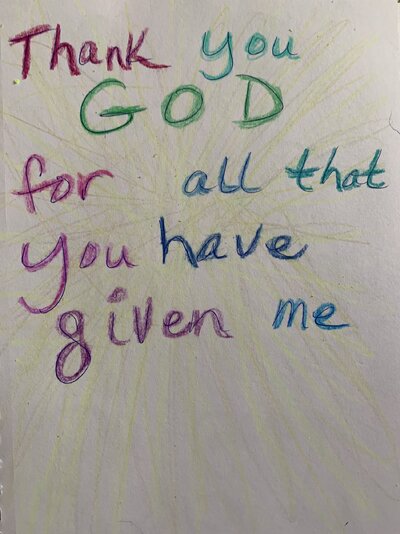 Thank you
GOD
for all that
you have
given me